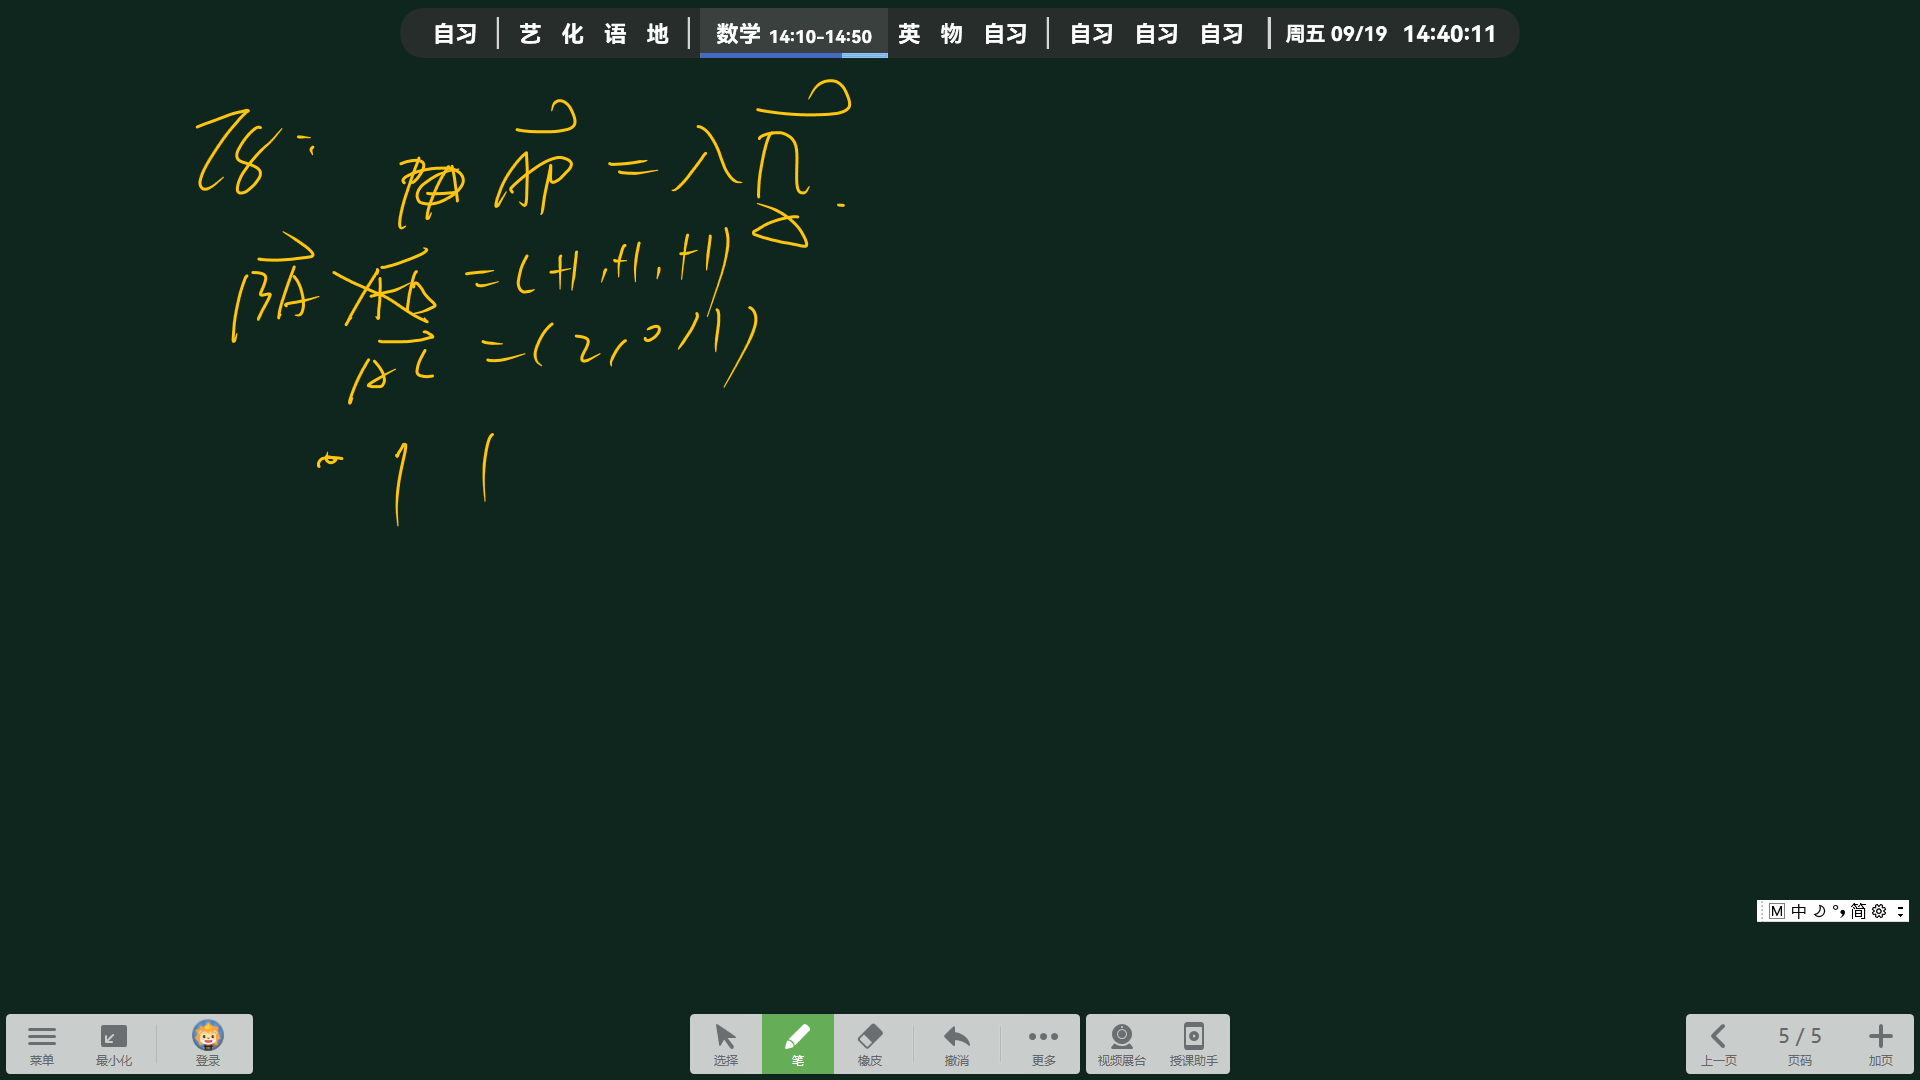 自习 | 艺 化 语 地 | 数学 14:10-14:50 英 物 自习 | 自习 自习 自习 | 周五 09/19 14:40:11
T8: AP = λ n
BA = (+1, +1, +1)
AC = (2, 0, 1)
M 中 简
菜单 最小化 登录 选择 笔 橡皮 撤消 更多 视频展台 授课助手 上一页 5 / 5 页码 加页